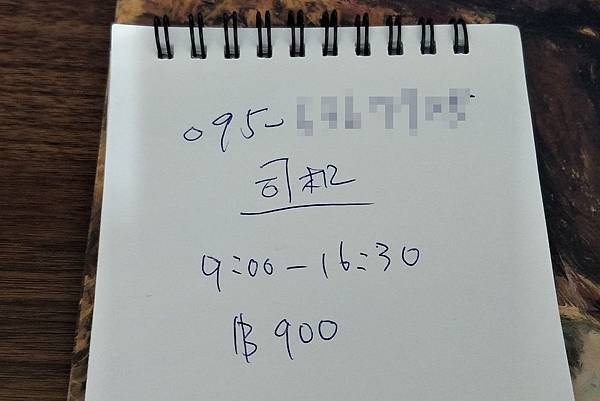 095-
司机
9:00-16:30
฿900